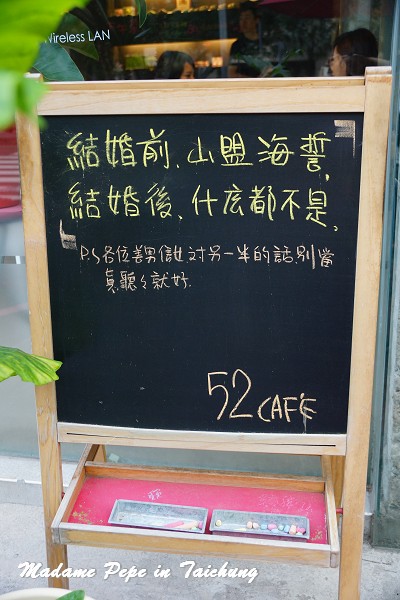 Wireless LAN
結婚前、山盟海誓,
結婚後、什庅都不是,
P.S各位善男信女.对另一半的話.別當
真.聽々就好.
52 CAFE
Madame Pepe in Taichung